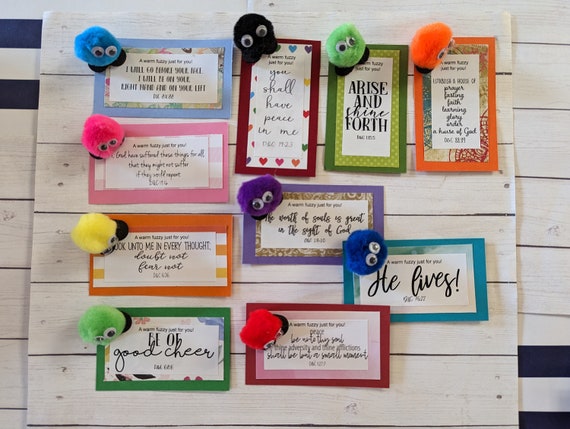 A warm fuzzy just for you!
I WILL GO BEFORE YOUR FACE.
I WILL BE ON YOUR
RIGHT HAND AND ON YOUR LEFT
A warm fuzzy just for you!
you
shall
have
peace
in me
A warm fuzzy just for you!
ARISE
AND
shine
FORTH
A warm fuzzy just for you!
ESTABLISH A HOUSE OF
prayer
fasting
faith
learning
glory
order
a house of God
A warm fuzzy just for you!
God have suffered these things for all
that they might not suffer
if they would repent
A warm fuzzy just for you!
The worth of souls is great
in the sight of God!
A warm fuzzy just for you!
LOOK UNTO ME IN EVERY THOUGHT;
doubt not
fear not
D&C 6:36
A warm fuzzy just for you!
He lives!
A warm fuzzy just for you!
BE OF
good cheer
A warm fuzzy just for you!
peace
be unto thy soul
thine adversity and thine afflictions
shall be but a small moment